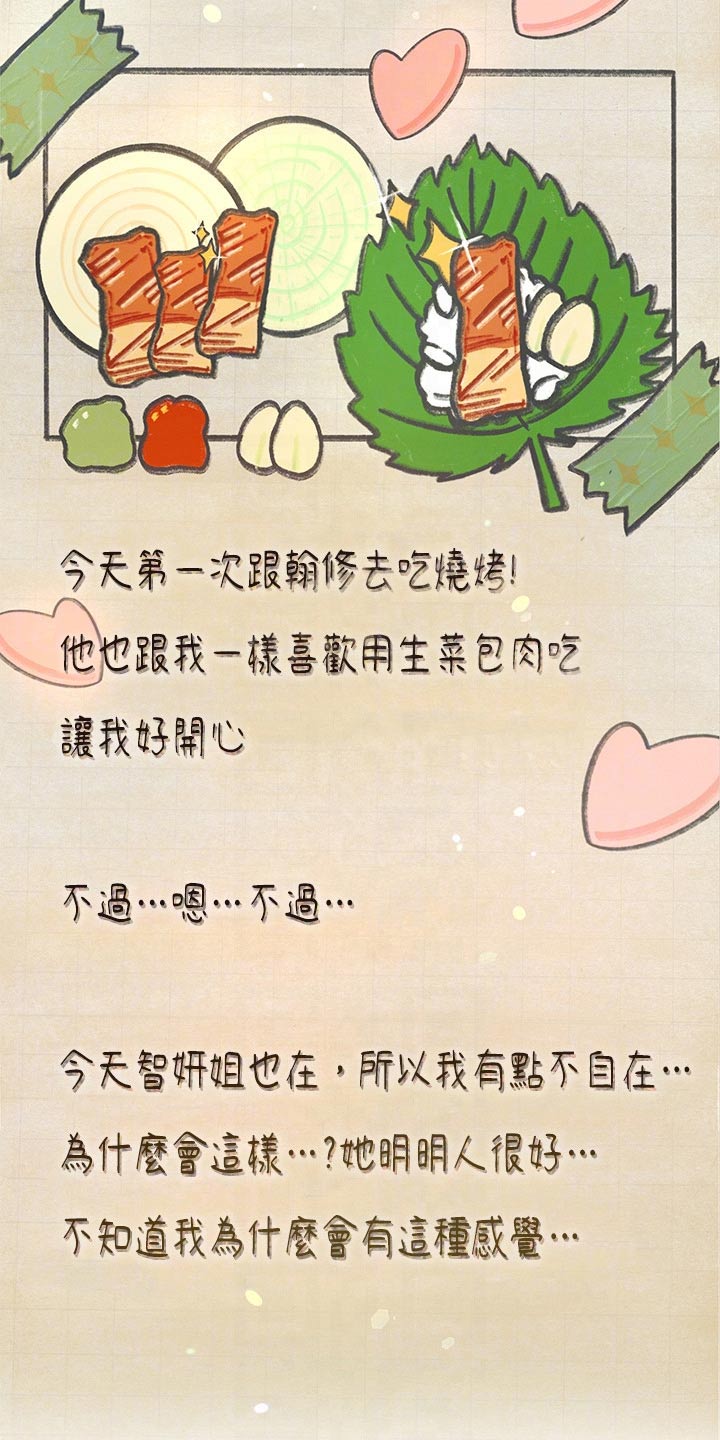 今天第一次跟翰修去吃燒烤!
他也跟我一樣喜歡用生菜包肉吃
讓我好開心
不過…嗯…不過…
今天智妍姐也在，所以我有點不自在…
為什麼會這樣…?她明明人很好…
不知道我為什麼會有這種感覺…